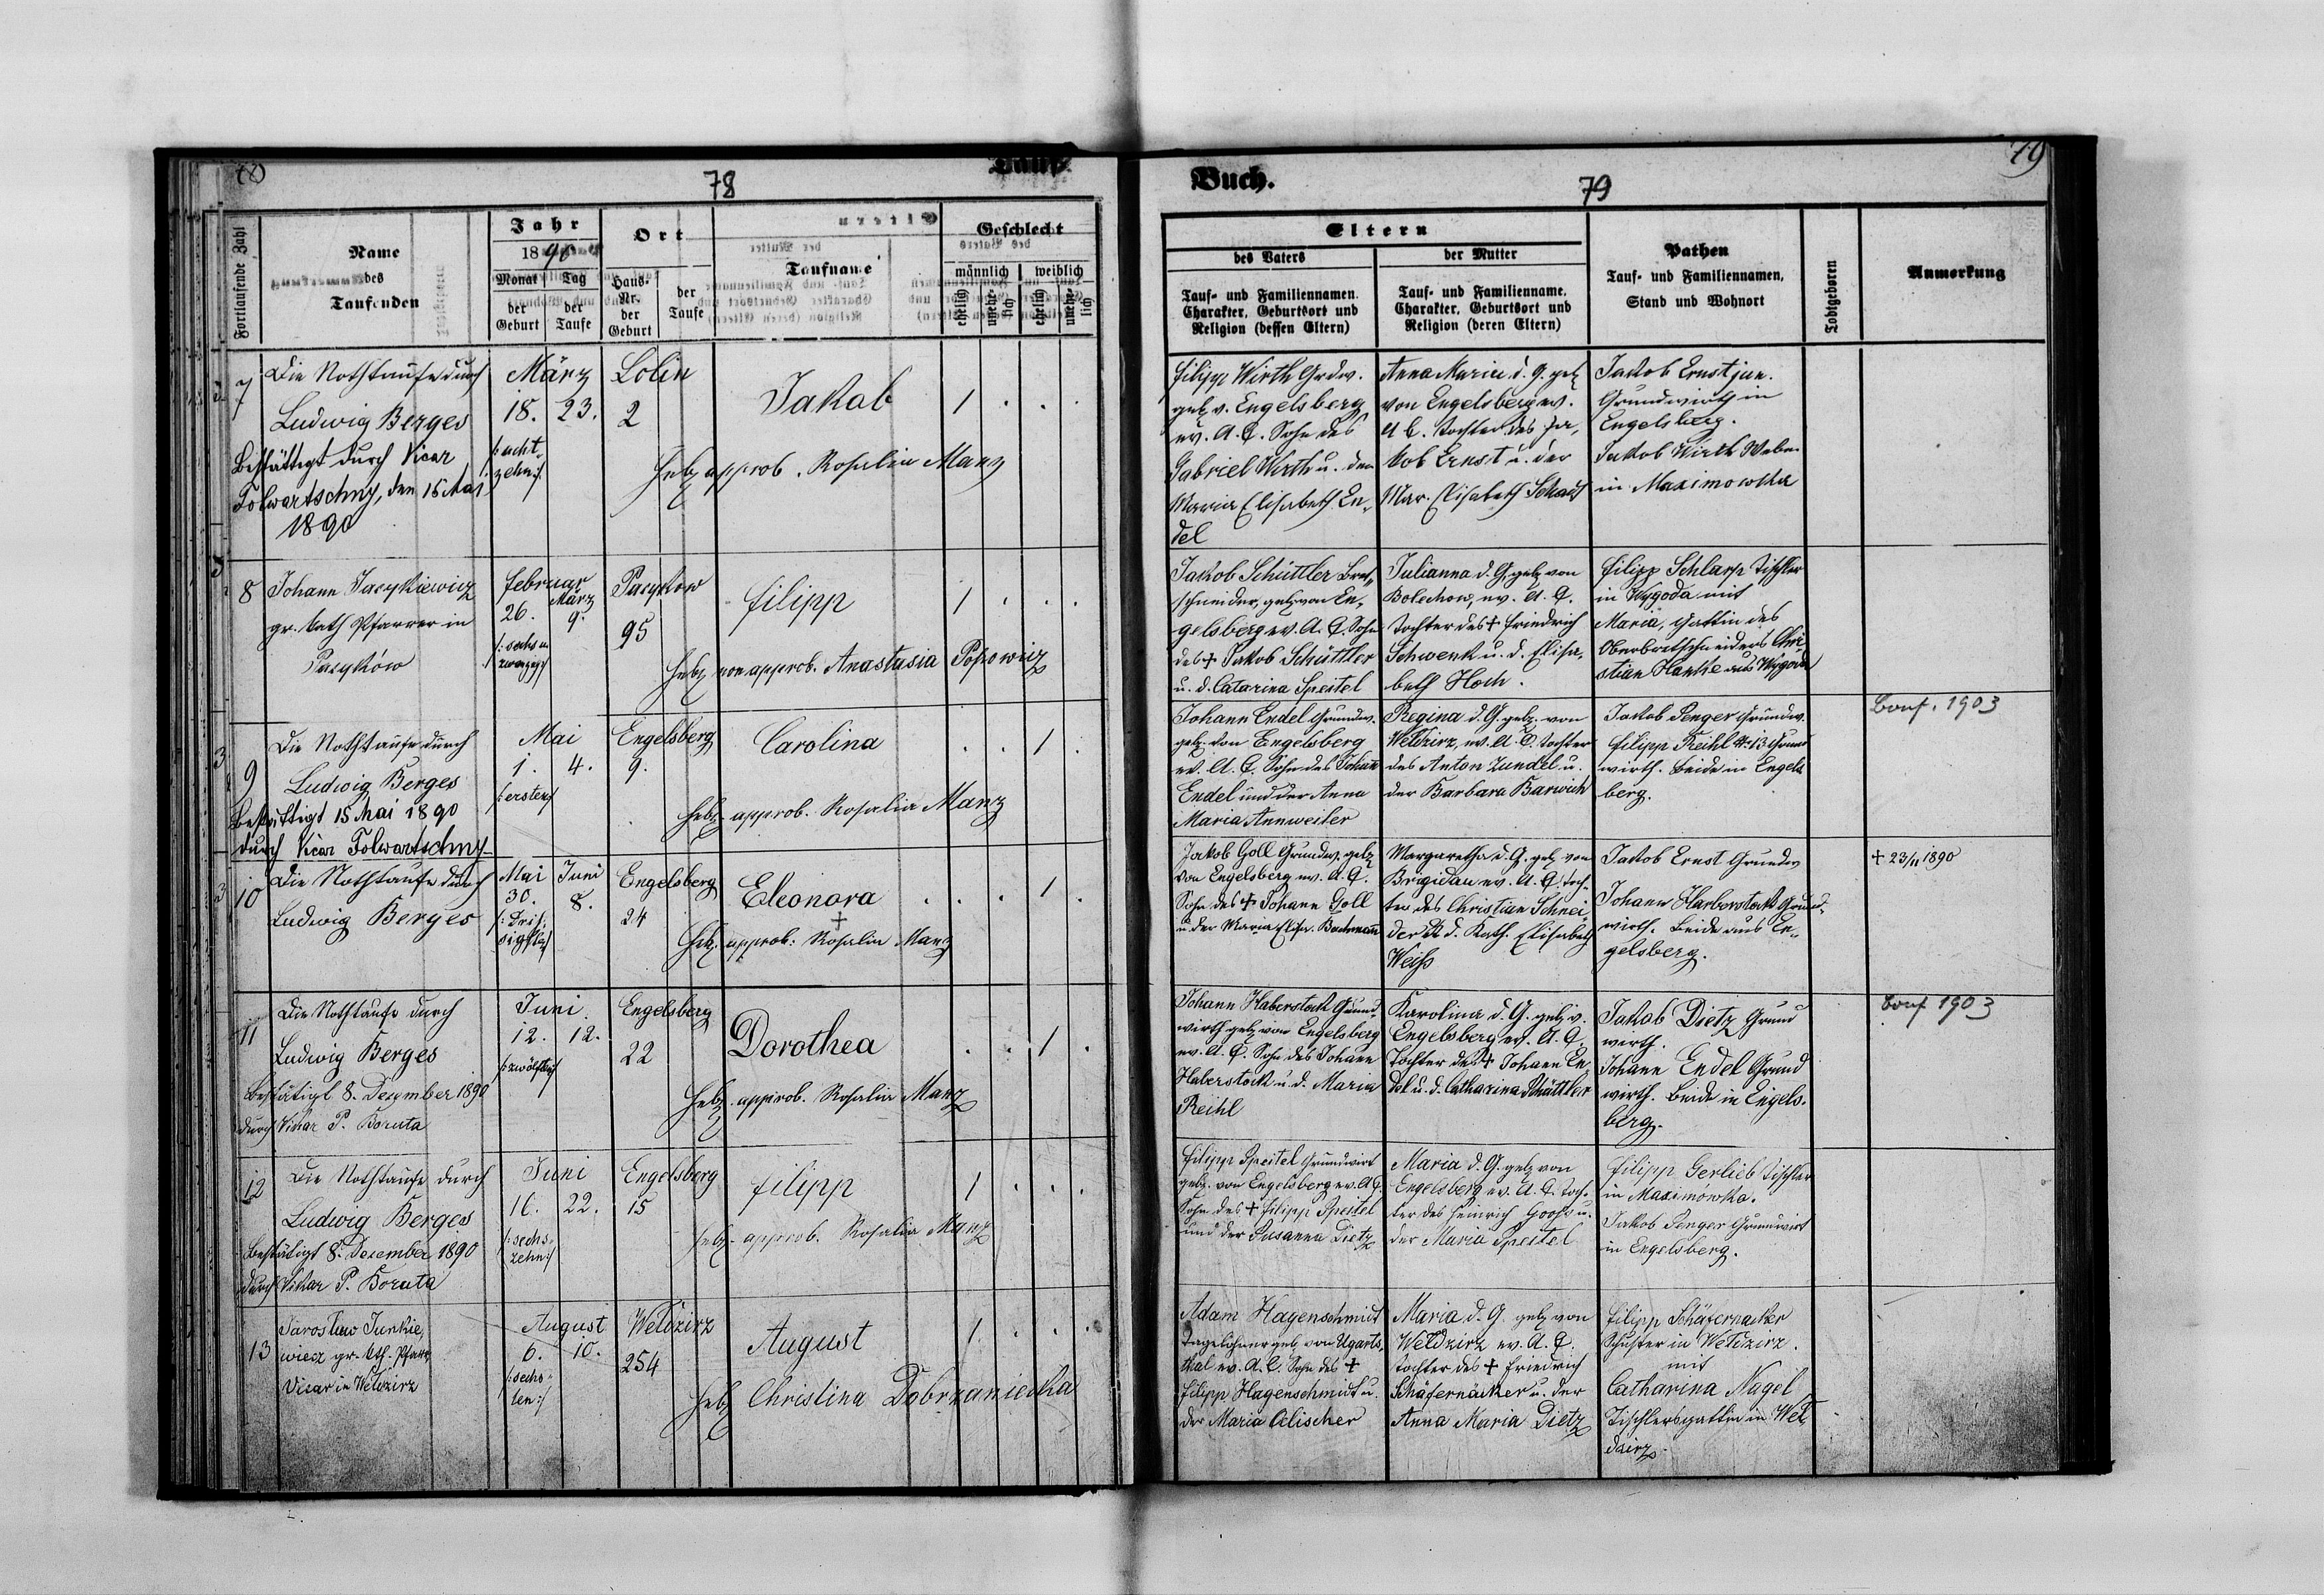 78
79
78
Tauf-
Buch.
79
Fortlaufende Zahl
Name
des
Taufenden
Jahr
1890
Monat
Tag
der
Geburt
der
Taufe
Ort
Haus-
Nr.
der
Geburt
der
Taufe
Taufname
Geschlecht
männlich
weiblich
ehelich
unehe-
lich
ehelich
unehe-
lich
Eltern
des Vaters
Tauf- und Familiennamen.
Charakter, Geburtsort und
Religion (dessen Eltern)
der Mutter
Tauf- und Familienname.
Charakter, Geburtsort und
Religion (deren Eltern)
Pathen
Tauf- und Familiennamen,
Stand und Wohnort
Todtgeboren
Anmerkung
7
Die Nothtaufe durch
Ludwig Berges
Bestättigt durch Vicar
Folwartschny, den 15 Mai
1890
März
18. 23.
/: acht
zehn :/
Lolin
2
Jakob
1 . . .
Heb approb. Rosalia Manz
Filipp Wirth Grdw.
geb v. Engelsberg
ev. A. C. Sohn des
Gabriel Wirth u. der
Maria Elisabeth En-
del
Anna Maria d. G. geb
von Engelsberg ev.
A C. Tochter des Ja-
kob Ernst u. der
Mar. Elisabeth Schauß
Jakob Ernst jun.
Grundwirth in
Engelsberg.
Jakob Wirth Weber
in Maximowka
8
Johann Jacykiewicz
gr. kath Pfarrer in
Pacyków
Februar
März
26. 9.
/: sechs u
zwanzig :/
Pacyków
95
Filipp
1 . . .
Heb non approb. Anastasia Popowicz
Jakob Schüttler Bret-
schneider, geb von En-
gelsberg ev. A. C. Sohn
des + Jakob Schüttler
u. d. Catarina Speitel
Julianna d. G. geb von
Bolechow, ev. A. C.
Tochter des + Friedrich
Schwenk u. d. Elisa-
beth Hoch.
Filipp Schlarp Tischler
in Wygoda mit
Maria, Gattin des
Oberbretschneiders Chri-
stian Hanke aus Wygoda
9
Die Nothtaufe durch
Ludwig Berges
Bestättigt 15 Mai 1890
durch Vicar Folwartschny
Mai
1. 4.
/: ersten :/
Engelsberg
9.
Carolina
. . 1 .
Heb. approb. Rosalia Manz
Johann Endel Grundw.
geb. von Engelsberg
ev. A. C. Sohn des Johann
Endel und der Anna
Maria Annweiler
Regina d. G. geb. von
Weldzirz, ev. A. C. Tochter
des Anton Zundel u.
der Barbara Barwich
Jakob Senger Grundw.
Filipp Reihl N. 13 Grund
wirth. Beide in Engels
berg.
Conf. 1903
10
Die Nothtaufe durch
Ludwig Berges
Mai Juni
30. 8.
/: Drei-
sigsten :/
Engelsberg
24
Eleonora
+
. . 1 .
Heb. approb. Rosalia Manz
Jakob Goll Grundw. geb
von Engelsberg ev. A. C.
Sohn des + Johann Goll
u. der Maria Elisa. Bachmann
Margaretha d. G. geb von
Brigidau ev. A. C. Toch-
ter des Christian Schnei-
der u. d. Kath. Elisabeth
Weiss
Jakob Ernst Grundw
Johann Harberstock Grund-
wirth. Beide aus En-
gelsberg.
+ 23/11 1890
11
Die Nothtaufe durch
Ludwig Berges
Bestätigt 8. Dezember 1890
durch Vikar P. Boruta
Juni.
12. 12.
/: zwölften :/
Engelsberg
22
Dorothea
. . 1 .
Heb. approb. Rosalia Manz
Johann Haberstock Grund-
wirth geb von Engelsberg
ev. A. C. Sohn des Johann
Haberstock u. d. Maria
Reihl
Karolina d. G. geb v.
Engelsberg ev. A. C.
Tochter des + Johann En-
del u. d. Catharina Schüttler
Jakob Dietz Grund
wirth.
Johann Endel Grund
wirth. Beide in Engels-
berg.
Conf 1903
12
Die Nothtaufe durch
Ludwig Berges
Bestätigt 8. Dezember 1890
durch Vikar P. Boruta
Juni
16. 22.
/: sechs-
zehn :/
Engelsberg
15
Filipp
1 . . .
Heb. approb. Rosalia Manz
Filipp Speitel Grundwirt
geb. von Engelsberg ev. A C.
Sohn des + Filipp Speitel
und der Susanna Dietz
Maria d. G. geb von
Engelsberg ev. A. C. Toch-
ter des Heinrich Gooss u.
der Maria Speitel
Filipp Gerlieb Tischler
in Maximówka.
Jakob Senger Grundwirt
in Engelsberg.
13
Jaroslaw Junkie-
wicz gr. kth. Pfarr
Vicar in Weldzirz
August
6. 10.
/: sechs-
ten :/
Weldzirz
254
August
1 . . .
Heb Christina Dobrzaniecka
Adam Hagenschmidt
Tagelöhner geb von Ugarts-
thal ev. A. C. Sohn des +
Filipp Hagenschmidt u.
der Maria Oelischer
Maria d. G. geb von
Weldzirz ev. A. C.
Tochter des + Friedrich
Schäfernäcker u. der
Anna Maria Dietz
Filipp Schäfernacker
Schuster in Weldzirz.
mit
Catharina Nagel
Tischlersgattin in Wel
dzirz.